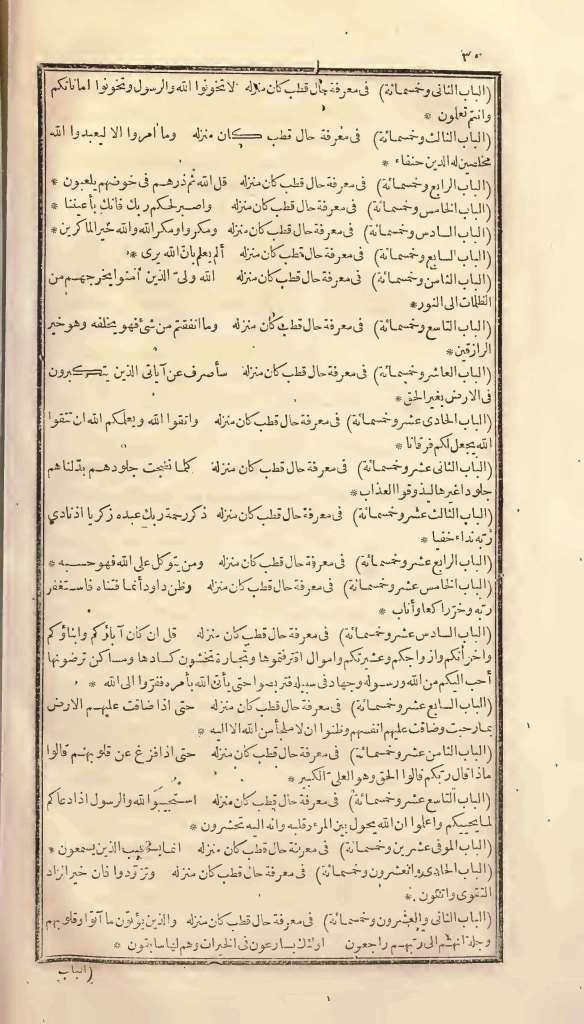 ٣٠
(الباب الثانى وخمسمائة) فى معرفة حال قطب كان منزله لا تخونوا الله والرسول وتخونوا اماناتكم
وانتم تعلمون *
(الباب الثالث وخمسمائة) فى معرفة حال قطب كان منزله وما امروا الا ليعبدوا الله
مخلصين له الدين حنفاء *
(الباب الرابع وخمسمائة) فى معرفة حال قطب كان منزله قل الله ثم ذرهم فى خوضهم يلعبون *
(الباب الخامس وخمسمائة) فى معرفة حال قطب كان منزله واصبر لحكم ربك فانك بأعيننا *
(الباب السادس وخمسمائة) فى معرفة حال قطب كان منزله ومكروا ومكر الله والله خير الماكرين *
(الباب السابع وخمسمائة) فى معرفة حال قطب كان منزله ألم يعلم بان الله يرى *
(الباب الثامن وخمسمائة) فى معرفة حال قطب كان منزله الله ولىّ الذين آمنوا يخرجهم من
الظلمات الى النور *
(الباب التاسع وخمسمائة) فى معرفة حال قطب كان منزله وما انفقتم من شئ فهو يخلفه وهو خير
الرازقين *
(الباب العاشر وخمسمائة) فى معرفة حال قطب كان منزله سأصرف عن آياتى الذين يتكبرون
فى الارض بغير الحق *
(الباب الحادى عشر وخمسمائة) فى معرفة حال قطب كان منزله واتقوا الله ويعلمكم الله ان تتقوا
الله يجعل لكم فرقانا *
(الباب الثانى عشر وخمسمائة) فى معرفة حال قطب كان منزله كلما نضجت جلودهم بدّلناهم
جلودا غيرها ليذوقوا العذاب *
(الباب الثالث عشر وخمسمائة) فى معرفة حال قطب كان منزله ذكر رحمة ربك عبده زكريا اذ نادى
ربه نداء خفيا *
(الباب الرابع عشر وخمسمائة) فى معرفة حال قطب كان منزله ومن يتوكل على الله فهو حسبه *
(الباب الخامس عشر وخمسمائة) فى معرفة حال قطب كان منزله وظن داود أنما فتناه فاستغفر
ربه وخرّ راكعا وأناب *
(الباب السادس عشر وخمسمائة) فى معرفة حال قطب كان منزله قل ان كان آباؤكم وابناؤكم
واخوانكم وازواجكم وعشيرتكم واموال اقترفتموها وتجارة تخشون كسادها ومساكن ترضونها
أحب اليكم من الله ورسوله وجهاد فى سبيله فتربصوا حتى يأتى الله بأمره ففرّوا الى الله *
(الباب السابع عشر وخمسمائة) فى معرفة حال قطب كان منزله حتى اذا ضاقت عليهم الارض
بما رحبت وضاقت عليهم انفسهم وظنوا ان لا ملجأ من الله الا اليه *
(الباب الثامن عشر وخمسمائة) فى معرفة حال قطب كان منزله حتى اذا فزع عن قلوبهم قالوا
ماذا قال ربكم قالوا الحق وهو العلىّ الكبير *
(الباب التاسع عشر وخمسمائة) فى معرفة حال قطب كان منزله استجيبوا لله والرسول اذا دعاكم
لما يحييكم واعلموا ان الله يحول بين المرء وقلبه وانه اليه تحشرون *
(الباب الموفى عشرين وخمسمائة) فى معرفة حال قطب كان منزله انما يستجيب الذين يسمعون *
(الباب الحادى والعشرون وخمسمائة) فى معرفة حال قطب كان منزله وتزوّدوا فان خير الزاد
التقوى واتقون *
(الباب الثانى والعشرون وخمسمائة) فى معرفة حال قطب كان منزله والذين يؤتون ما آتوا وقلوبهم
وجلة انهم الى ربهم راجعون اولئك يسارعون فى الخيرات وهم لها سابقون *
(الباب